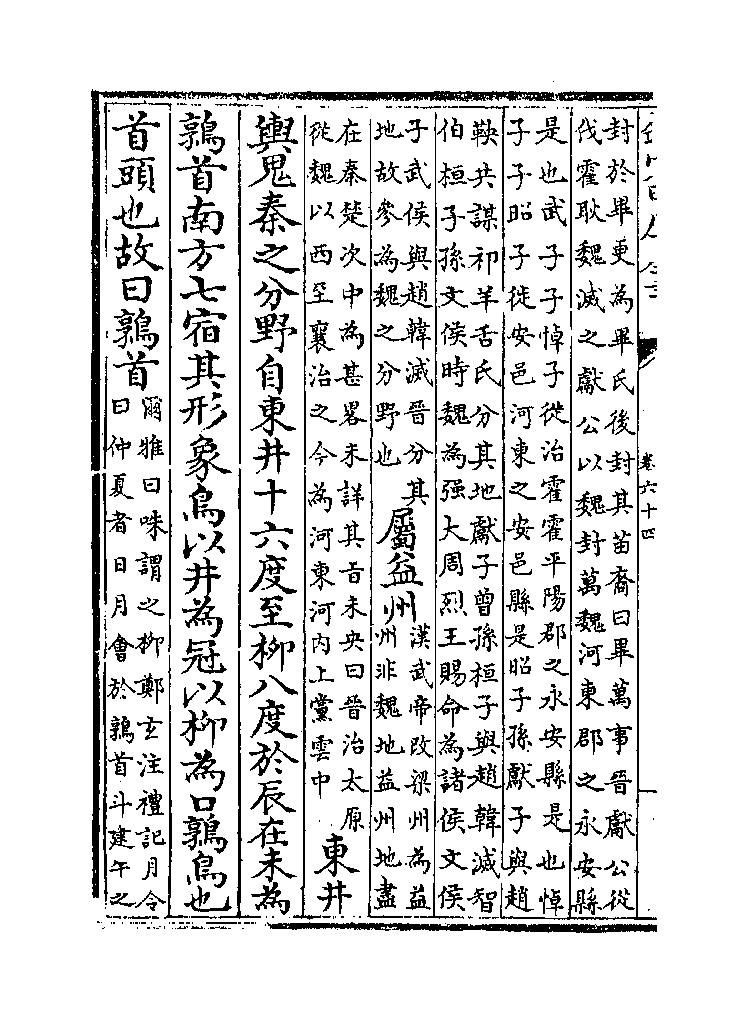 卷六十四
封於畢更為畢氏後封其苗裔曰畢萬事晉獻公從
伐霍耿魏滅之獻公以魏封萬魏河東郡之永安縣
是也武子子悼子從治霍霍平陽郡之永安縣是也悼
子子昭子徙安邑河東之安邑縣是昭子孫獻子與趙
鞅共謀祁羊舌氏分其地獻子曾孫桓子與趙韓滅智
伯桓子孫文侯時魏為强大周烈王賜命為諸侯文侯
子武侯與趙韓滅晉分其
地故參為魏之分野也
屬益州
漢武帝改梁州為益
州非魏地益州地盡
在秦楚次中為甚畧未詳其旨未央曰晉治太原
從魏以西至襄治之今為河東河内上黨雲中
東井
輿鬼秦之分野自東井十六度至柳八度於辰在未為
鶉首南方七宿其形象鳥以井為冠以柳為口鶉鳥也
首頭也故曰鶉首
爾雅曰咮謂之柳鄭玄注禮記月令
曰仲夏者日月會於鶉首斗建午之